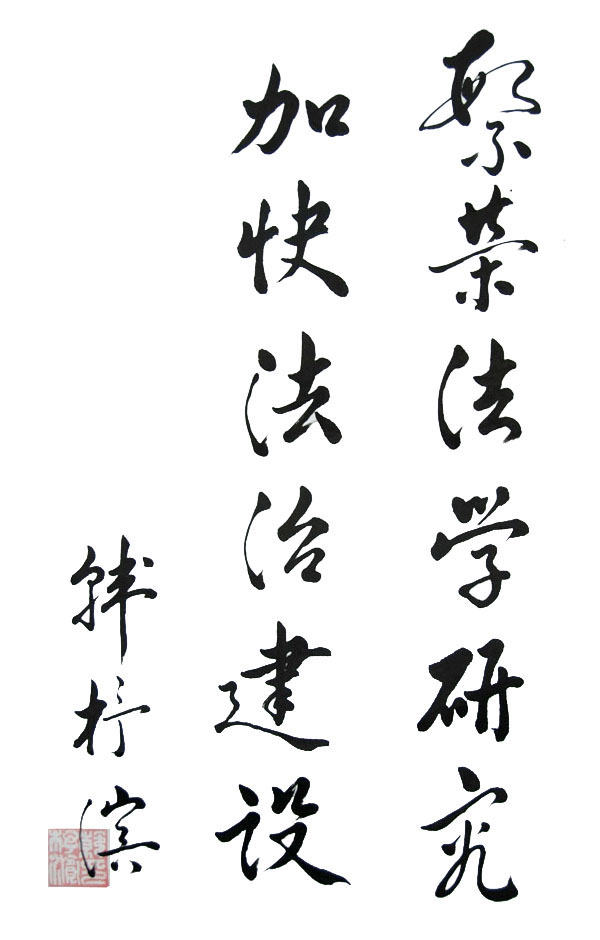 繁荣法学研究
加快法治建设
韩杼滨